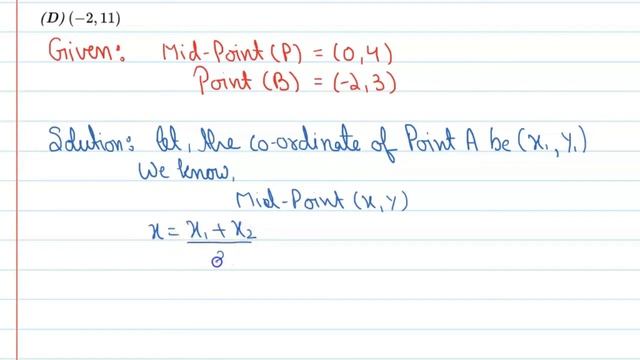 (D) (−2, 11)
Given: Mid-Point (P) = (0, 4)
Point (B) = (-2, 3)
Solution: let, the co-ordinate of Point A be (x₁, y₁)
We know,
Mid-Point (x, y)
x = x₁ + x₂
2